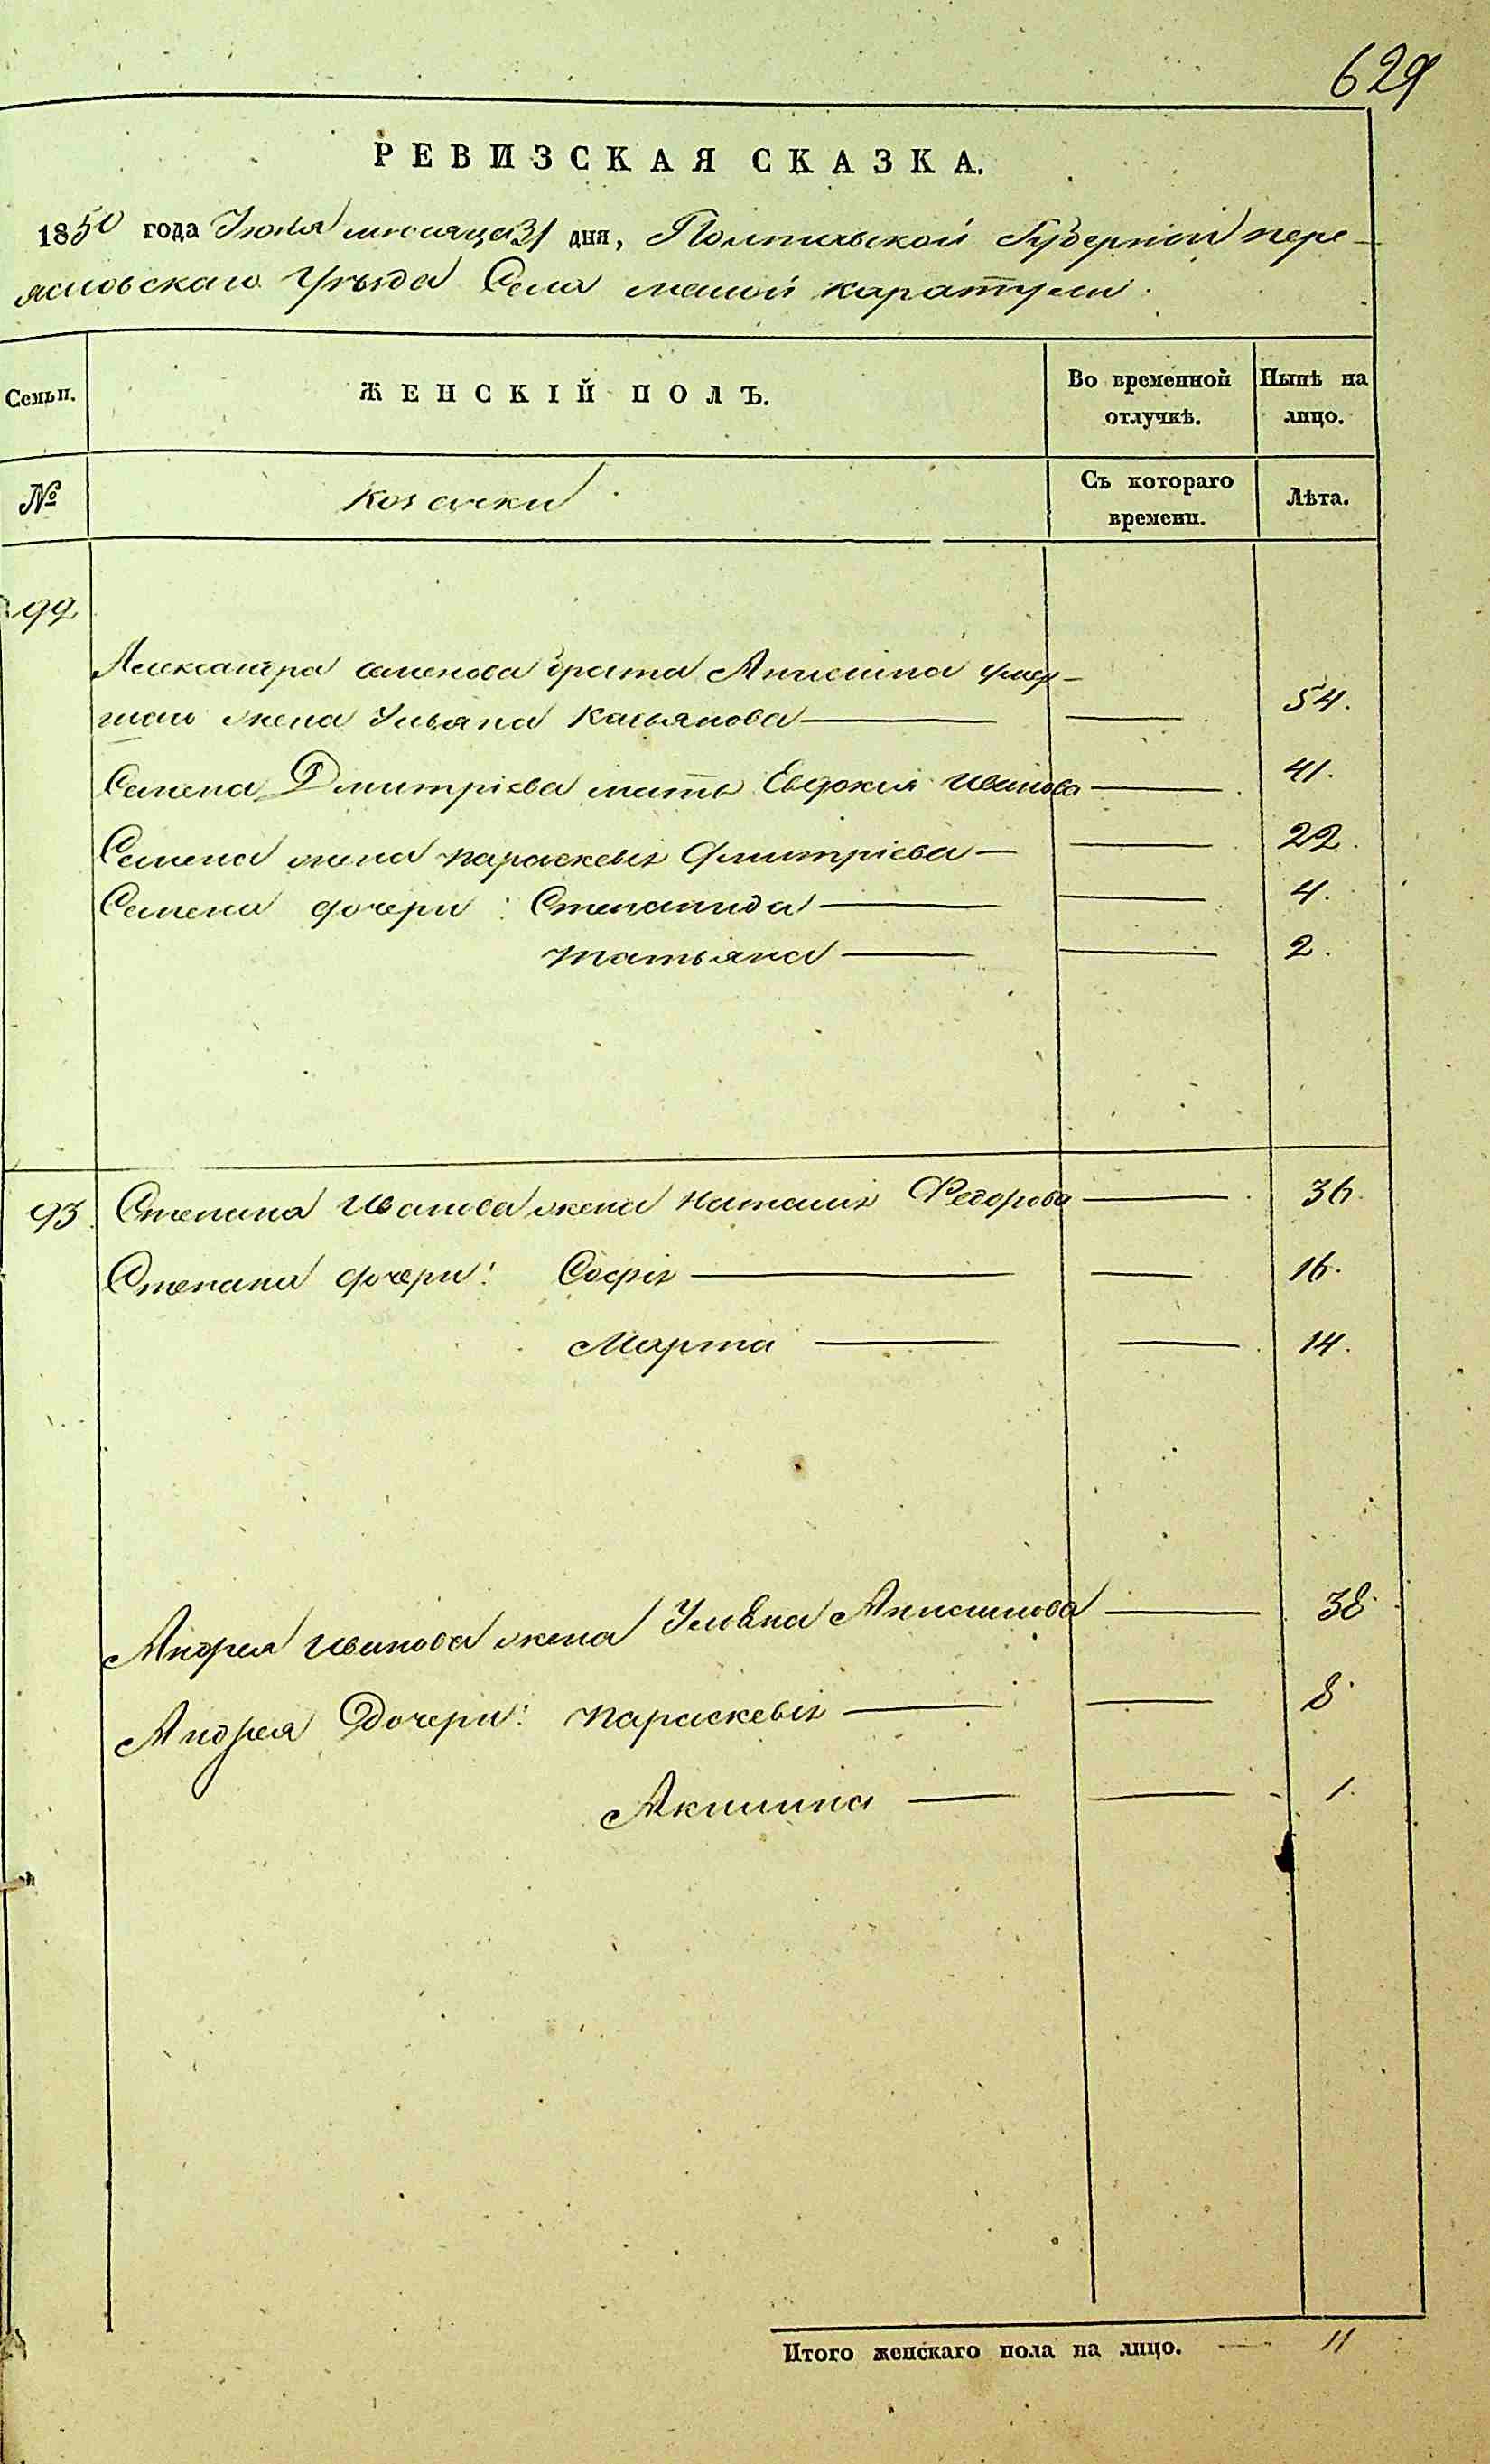 629
РЕВИЗСКАЯ СКАЗКА.
1850 года Июля месяца 31 дня, Полтавской Губернии пере-
яславскаго Уезда Села малой каратули.
Семьи. ЖЕНСКІЙ ПОЛЪ. Во временной отлучкѣ. Нынѣ на лицо.
№ козачки Съ котораго времени. Лѣта.
92
Александра семенова брата Анисима умер-
шаго жена Ульяна Касьянова 54.
Семена Дмитріева мать Евдокия иванова 41.
Семена жена параскевія Дмитріева 22.
Семена дочери: Степанида 4.
татьяна 2.
93. Степана Иванова жена наталія Федорова 36.
Степана дочери: Софія 16.
Марта 14.
Андрея иванова жена Ульяна Анисимова 38.
Андрея Дочери: параскевія 8.
Акилина 1.
Итого женскаго пола на лицо. 11